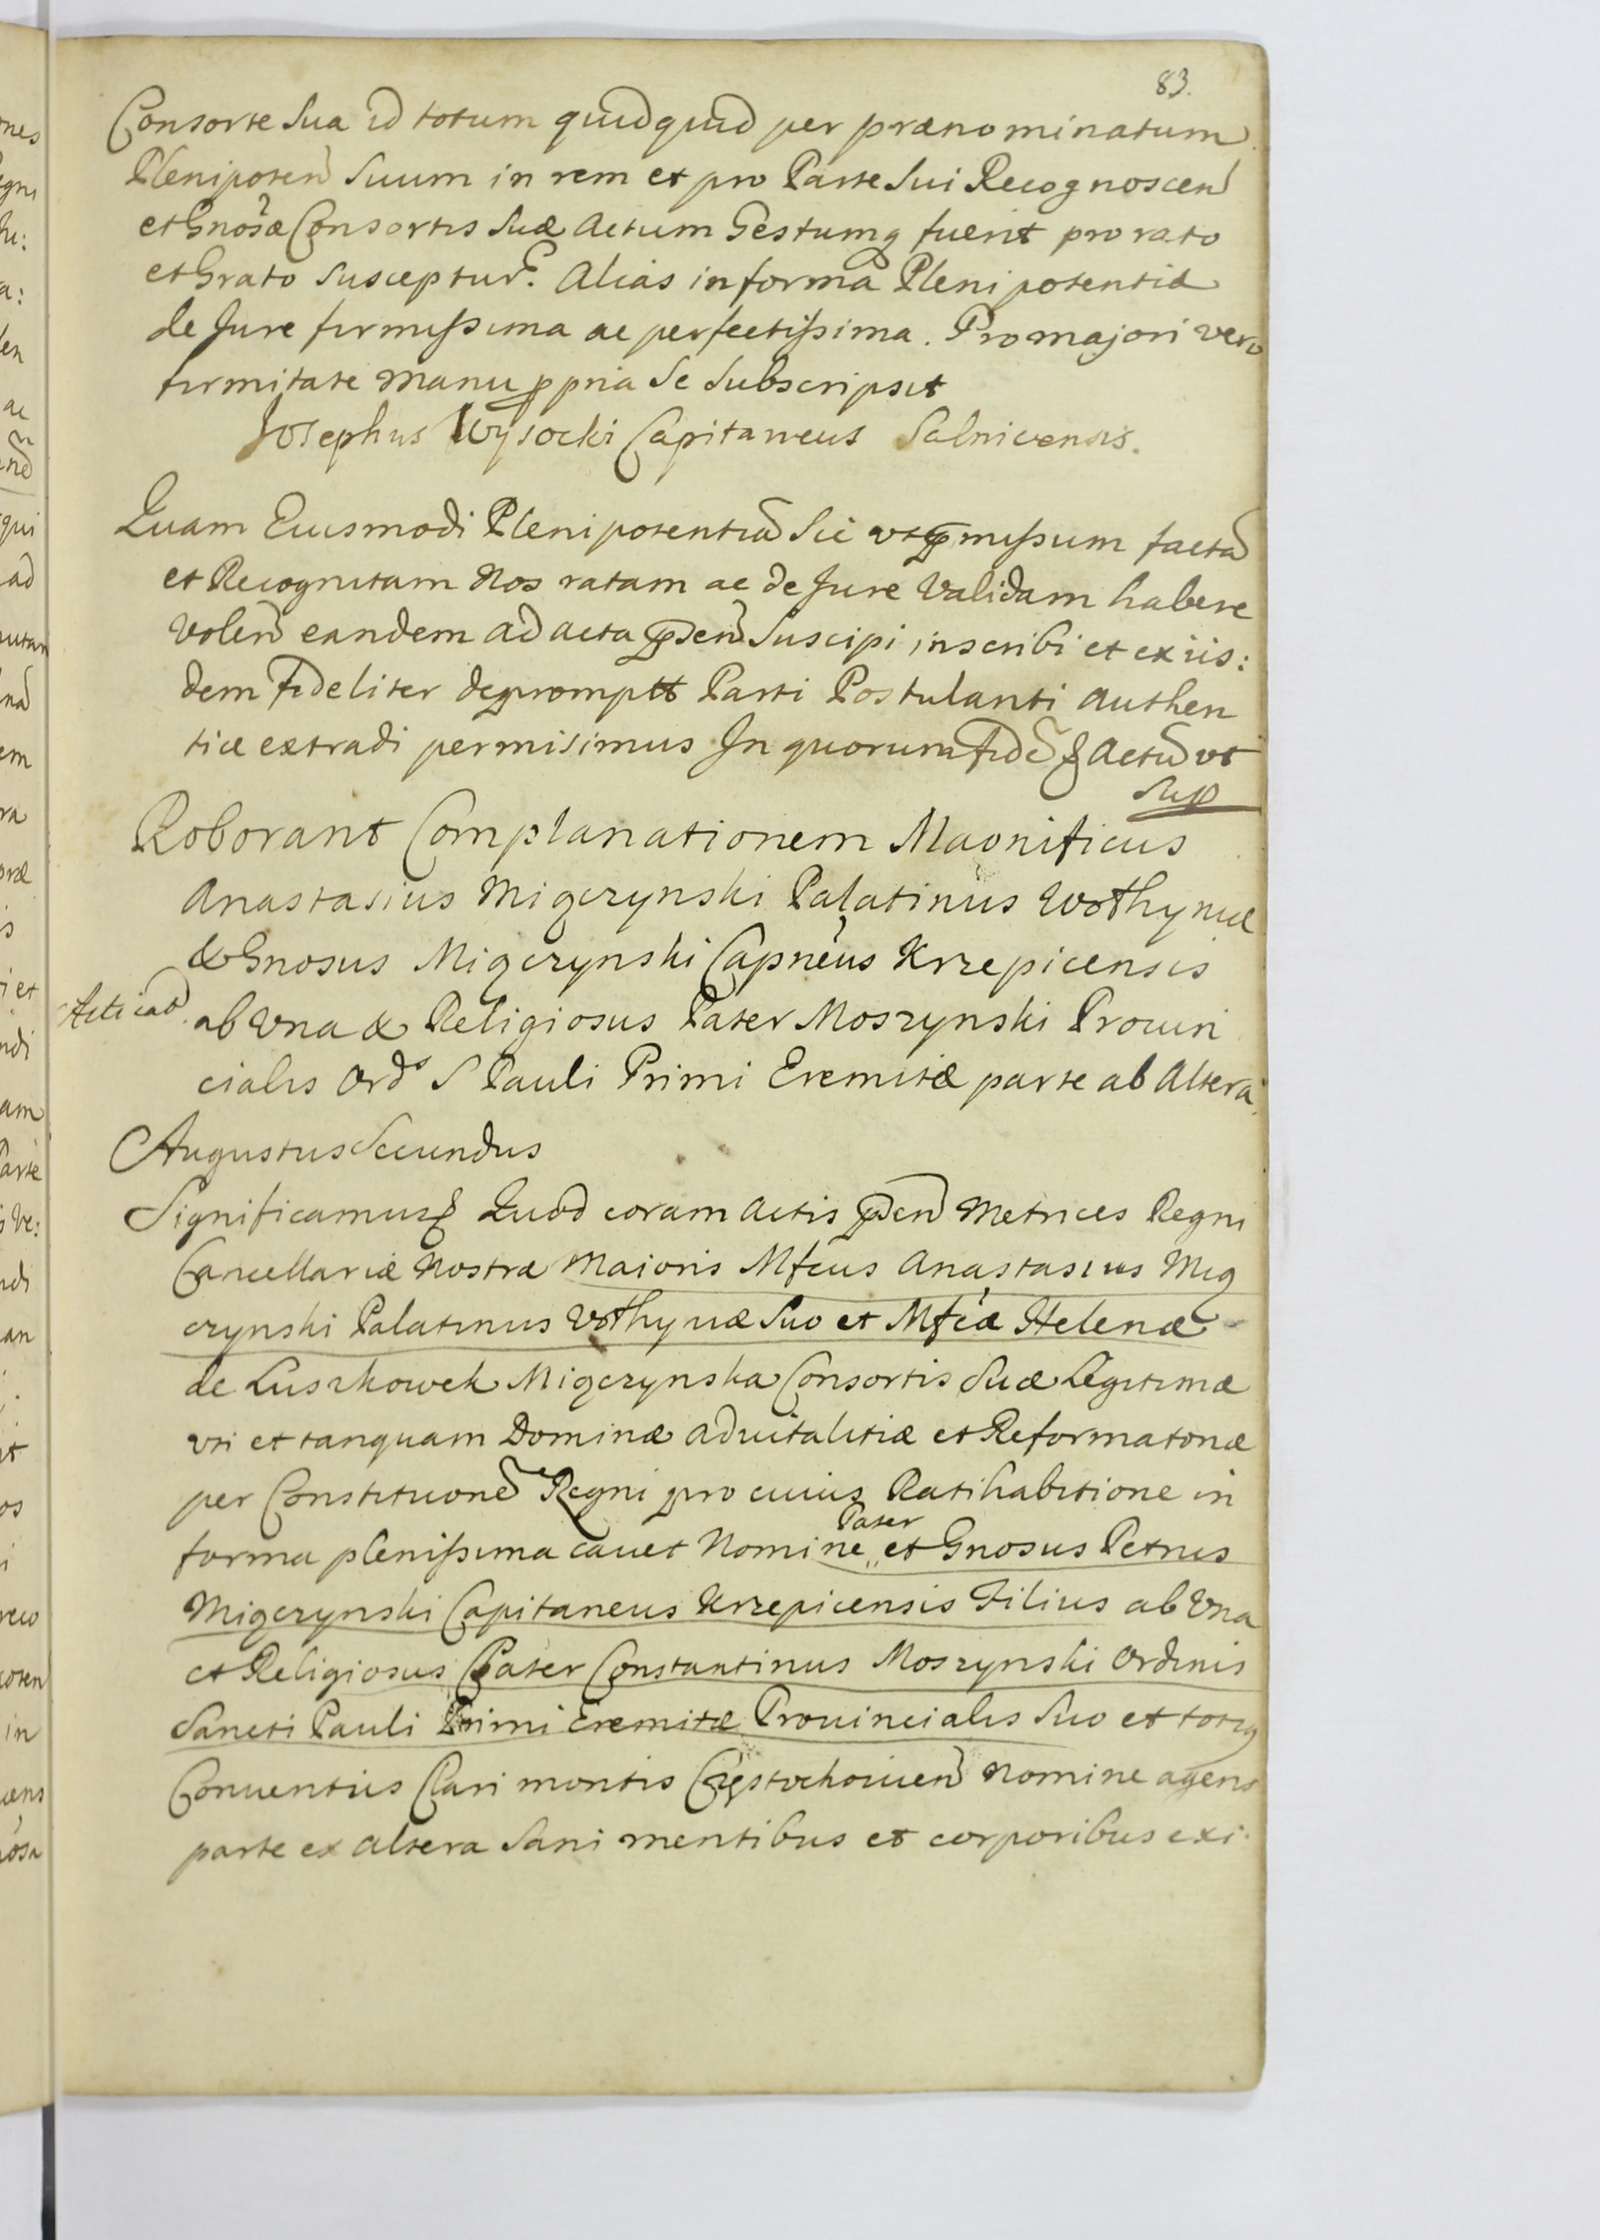 83.
Consorte Sua id totum quidquid per prænominatum
Plenipoten Suum in rem et pro Parte Sui Recognoscen
et Gnosæ Consortis Suæ Actum Gestumq fuerit pro rato
et Grato Susceptur. Alias in forma Plenipotentiæ
de Jure firmissima ac perfectissima. Pro majori vero
firmitate manu ppria Se Subscripsit
Josephus Wysocki Capitaneus Salnicensis.
Quam Eiusmodi Plenipotentiã Sic vt pmissum factã
et Recognitam Nos ratam ac de Jure Validam habere
Volen eandem ad acta psen Suscipi inscribi et ex iis:
dem fideliter depromptt Parti Postulanti Authen
tice extradi permisimus In quorum fidẽ & Actũ vt
Sup
Roborant Complanationem Magnificus
Anastasius Miączynski Palatinus Wołhyniæ
& Gnosus Miączynski Capneus Krzepicensis
Acticat.
ab Vna & Religiosus Pater Moszynski Provin
cialis Ord S Pauli Primi Eremitæ parte ab Altera.
Augustus Secundus
Significamus & Quod coram Actis psen Metrices Regni
Cancellariæ Nostræ Maioris Mfcus Anastasius Mią
czynski Palatinus Vołhyniæ Suo et Mfcæ Helenæ
de Luszkowek Miączynska Consortis Suæ Legitimæ
vti et tanquam Dominæ advitalitiæ et Reformatoriæ
per Constitutionẽ Regni pro cuius Ratihabitione in
forma plenissima cauet Nomine Pater et Gnosus Petrus
Miączynski Capitaneus Krzepicensis Filius ab Vna
et Religiosus Pater Constantinus Moszynski Ordinis
Sancti Pauli Primi Eremitæ Prouincialis Suo et totiq
Conuentus Clari montis Częstochouien Nomine agens
parte ex altera Sani mentibus et corporibus exi: